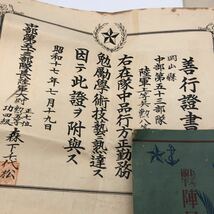 善行證書
岡山縣
中部第五十三部隊
陸軍上等兵勲八
右在隊中品行方正勤務
勉勵學術技藝熟達ス
因テ此證ヲ附與ス
昭和十七年七月十九日
中部第五十三部隊長陸軍
正七位
功四級
森下
松
戰陣